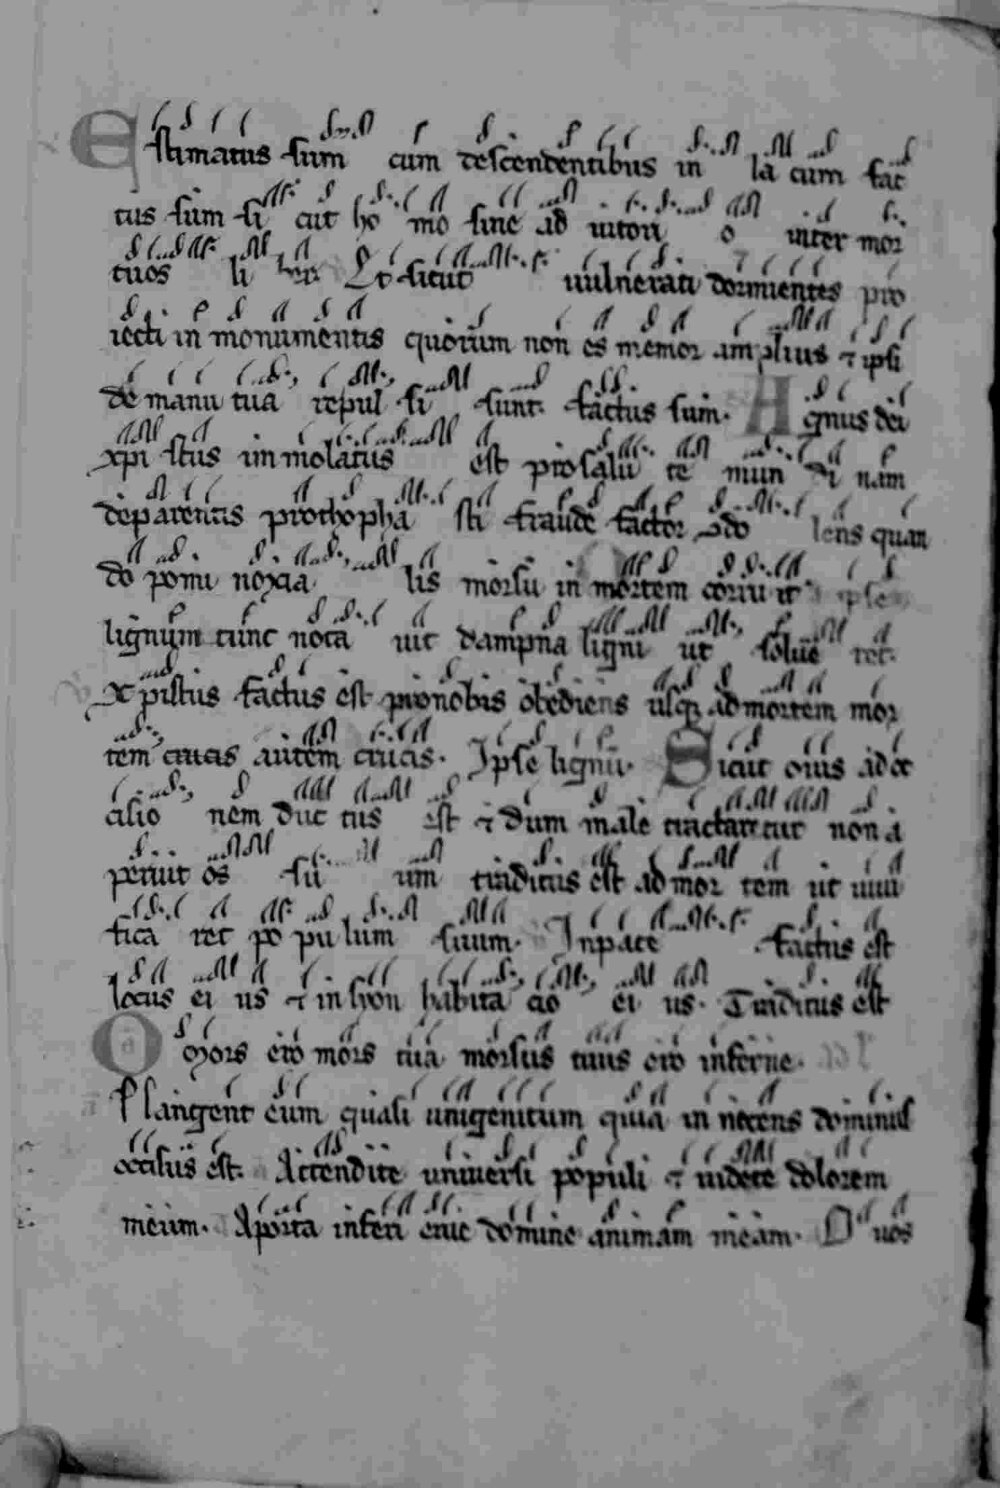 Estimatus sum cum descendentibus in la cum fac
tus sum si cut ho mo sine ad iutori o inter mor
tuos li ber Et sicut uulnerati dormientes pro
iecti in monumentis quorum non es memor amplius ⁊ ipsi
de manu tua repul si sunt. factus sum. Agnus dei
xpi stus im molatus est pro salu te mun di nam
de parentis prothopla sti fraude factor do lens quan
do pomi noxia lis morsu in mortem corru it ipse
lignum tunc nota uit dampna ligni ut solue ret.
Xpistus factus est pro nobis obediens usq; ad mortem mor
tem crucis autem crucis. Ipse lignū. Sicut ouis ad oc
cisio nem duc tus est ⁊ dum male tractaretur non a
peruit os su um traditus est ad mor tem ut uiui
fica ret po pu lum suum. In pace factus est
locus ei us ⁊ in syon habita cio ei us. Traditus est
O mors ero mors tua morsus tuus ero inferne.
Plangent eum quasi unigenitum quia innocens dominus
occisus est. Attendite uniuersi populi ⁊ uidete dolorem
meum. A porta inferi erue domine animam meam. O uos